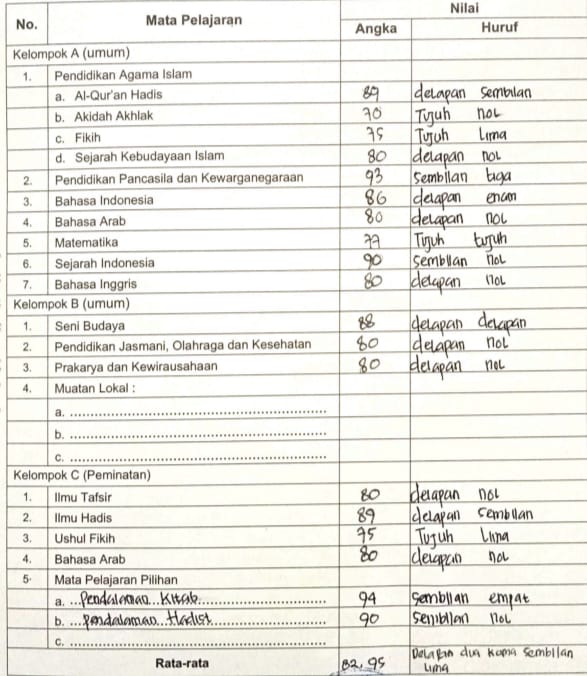 No. Mata Pelajaran Nilai
Angka Huruf
Kelompok A (umum)
1. Pendidikan Agama Islam
a. Al-Qur'an Hadis 89 delapan sembilan
b. Akidah Akhlak 70 Tujuh nol
c. Fikih 75 Tujuh Lima
d. Sejarah Kebudayaan Islam 80 delapan nol
2. Pendidikan Pancasila dan Kewarganegaraan 93 Sembilan tiga
3. Bahasa Indonesia 86 delapan enam
4. Bahasa Arab 80 delapan nol
5. Matematika 77 Tujuh tujuh
6. Sejarah Indonesia 90 Sembilan nol
7. Bahasa Inggris 80 delapan nol
Kelompok B (umum)
1. Seni Budaya 88 delapan delapan
2. Pendidikan Jasmani, Olahraga dan Kesehatan 80 delapan nol
3. Prakarya dan Kewirausahaan 80 delapan nol
4. Muatan Lokal :
a. ........................................
b. ........................................
c. ........................................
Kelompok C (Peminatan)
1. Ilmu Tafsir 80 delapan nol
2. Ilmu Hadis 89 delapan sembilan
3. Ushul Fikih 75 Tujuh Lima
4. Bahasa Arab 80 delapan nol
5. Mata Pelajaran Pilihan
a. ...Pendalaman..Kitab........................ 94 Sembilan empat
b. ...pendalaman..Hadist........................ 90 Sembilan nol
c. ........................................
Rata-rata 82,95 Delapan dua koma Sembilan
Lima